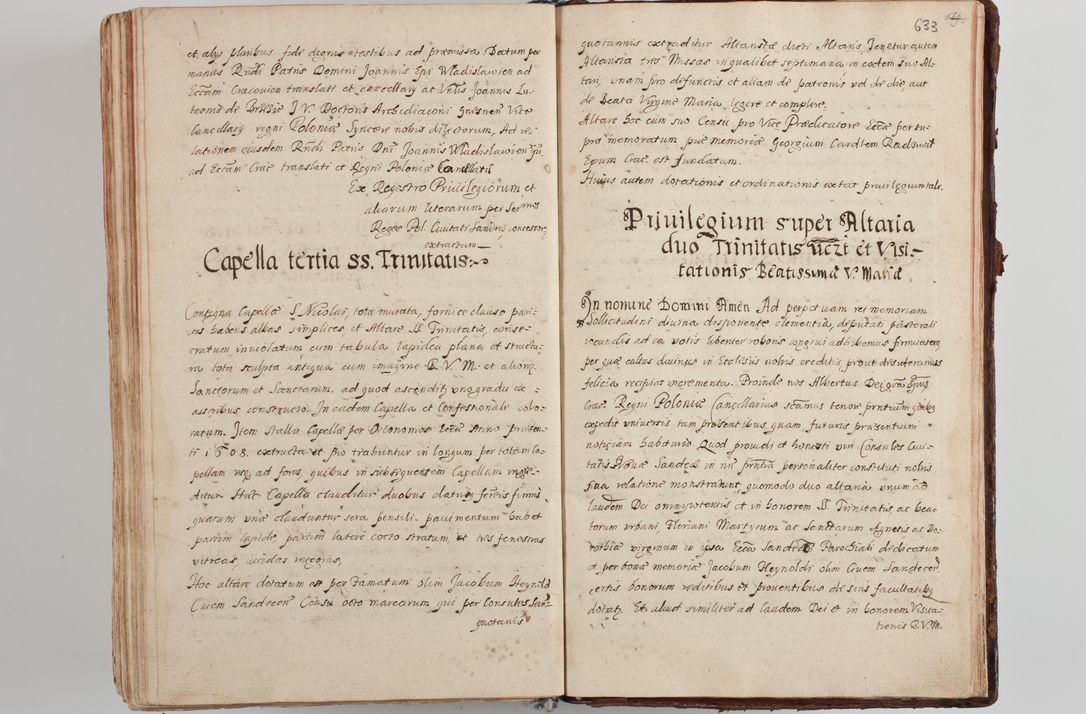 et alijs pluribus fide dignis testibus ad præmissa Datum per
manus Rndi Patris Domini Joannis Epi Wladislavien ad
Eccam Cracovien translati et cancellarij ac Vntis Joannis Lu-
teonis de Brzezie J. V. Doctoris Archidiaconi Gnesnen Vice
Cancellarij regni Poloniæ Syncere nobis dilectorum, Ad re-
lationem eiusdem Rndi Patris Dni Joannis Wladislavien Epi
ad Eccam Crac translati et Regni Poloniæ Cancellarii
Ex Regestro Priuilegiorum et
aliarum literarum per Sermos
Reges Pol. Ciuitati Sandecen concessarum
extractum
Capella tertia SS. Trinitatis:~
Contigua Capellæ S. Nicolai, tota murata, fornice clauso pari-
tes habens albos simplices, et Altare SS. Trinitatis, conse-
cratum inuiolatum, cum tabula lapidea plana et structu-
ra tota sculpta antiqua cum imagine B. V. M. et aliorum
Sanctorum et Sanctarum. ad quod ascenditur uno gradu ex
asseribus constructo. In eadem Capella et Confessionale colo-
ratum. Item Stalla Capellæ per Oeconomos Eccæ Anno præsen-
ti 1608. extructa et pro trabuntur in longum per totam Ca-
pellam usq ad fores, quibus in subsequentem Capellam ingre-
ditur Hæc Capella clauditur duobus clatris ferreis firmis
quarum una clauduntur sera pensili. pauimentum habet
partim lapide, partim latere cocto stratum, et tres fenestras
vitreas, lucidas integras,
Hoc altare dotatum est per Famatum olim Jacobum Heynold
Ciuem Sandecen Censu octo marcarum qui per Consules San-
quotanis
633
quotannis extraditur Altaristæ dicti Altaris, Tenetur autem
Altarista tres Missas in qualibet septimana in eodem suo Al-
tari, unam pro defunctis et aliam de patronis vel de die, aut
de Beata Virgine Maria, legere et complere.
Altare hoc cum suo Censu pro Vice Prædicatore Eccæ per su-
pra memoratum piæ memoriæ Georgium Cardlem Radziwil
Epum Crac. est fundatum.
Huius autem dotationis et ordinationis extat priuilegium tale.
Priuilegium super Altaria
duo Trinitatis uczt et Visi-
tationis Beatissimæ V. Mariæ
In nomine Domini Amen. Ad perpetuam rei memoriam
Sollicitudini diurna disponente clementia, deputati pastorali
iocundis ad ea votis libenter roboris congrui adhibemus firmitatem
per quæ cultus diuinus in Ecclesijs nobis creditis, prout desideramus
felicia recipiat incrementa. Proinde nos Albertus Dei gratia Epus
Crac. Regni Poloniæ Cancellarius Notum facimus tenore præntium quibus
expedit uniuersis tam præsentibus quam futuris præsentium
notitiam habituris Quod prouidi et honesti viri Consules Ciui-
tatis Nouæ Sandecz in nri præntia personaliter constituti nobis
sua relatione monstrarunt, quomodo duo altaria unum ad
laudem Dei omnipotentis et in honorem SS. Trinitatis, ac bea-
torum Urbani, Floriani Martyrum ac Sanctarum Agnetis ac Do-
rotheæ virginum in ipsa Ecca Sandecen Parochiali dedicatum
et per bonæ memoriæ Jacobum Heynoldi olim Ciuem Sandecen
certis bonorum reditibus et prouentibus de suis facultatibus
dotatum. Et aliud similiter ad laudem Dei et in honorem Visita-
tionis B. V. M.